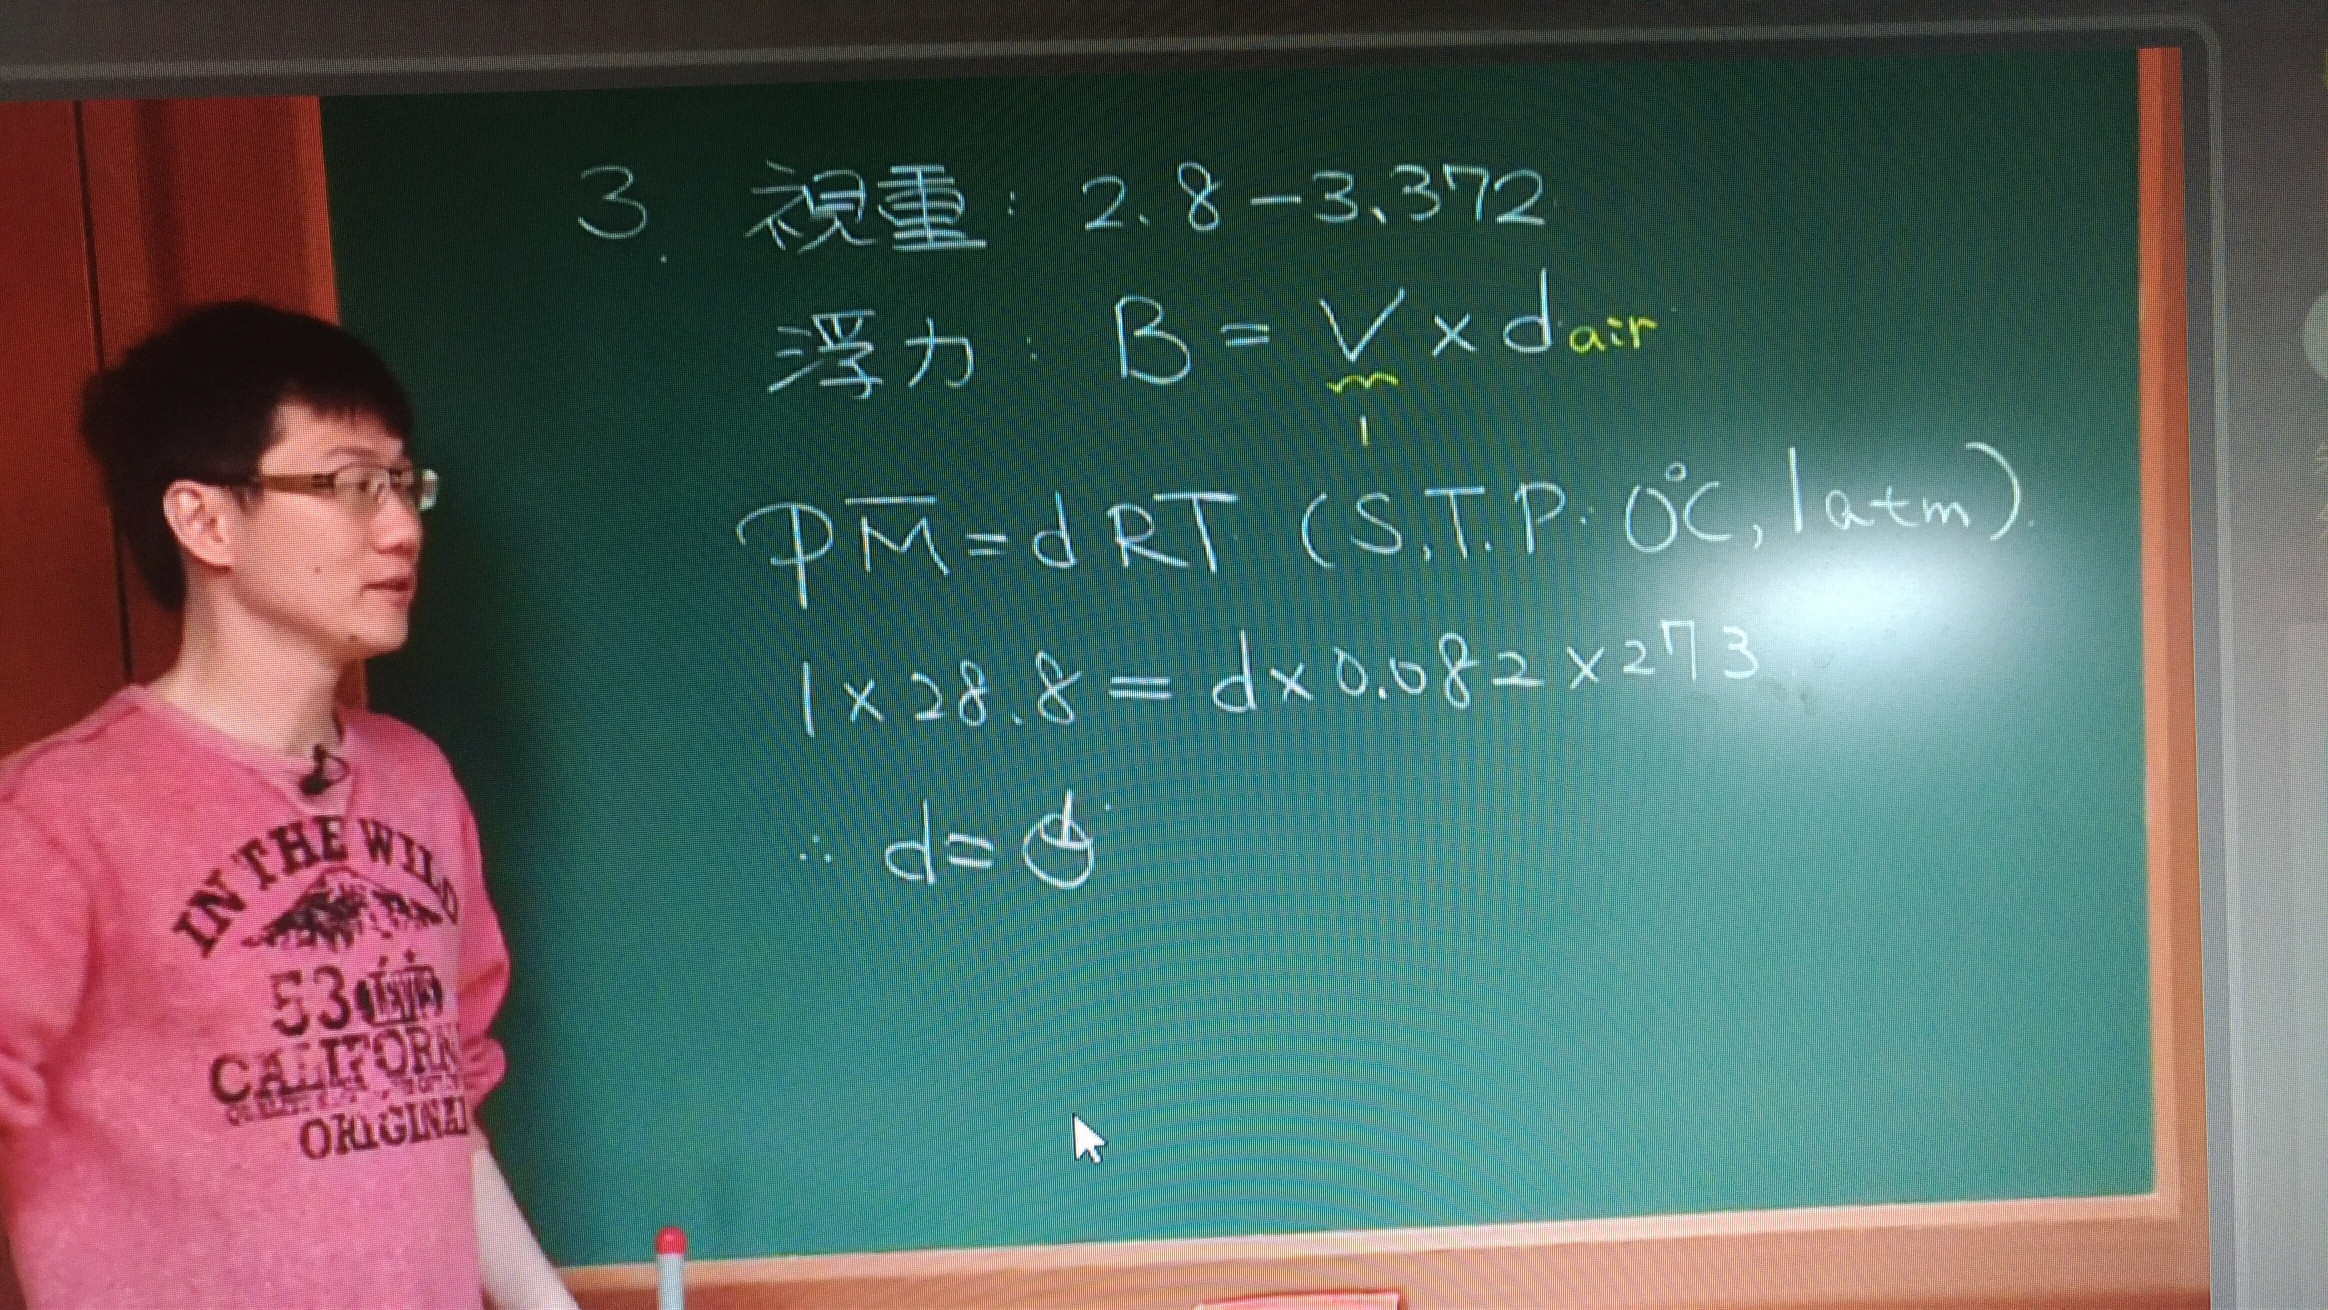 3. 視重: 2.8-3.372
浮力: B = V × dair
1
PM = dRT (S.T.P. 0°C, 1atm).
1×28.8 = d×0.082×273
∴ d=
IN THE WILD
53
CALIFORN
ORIGINAL